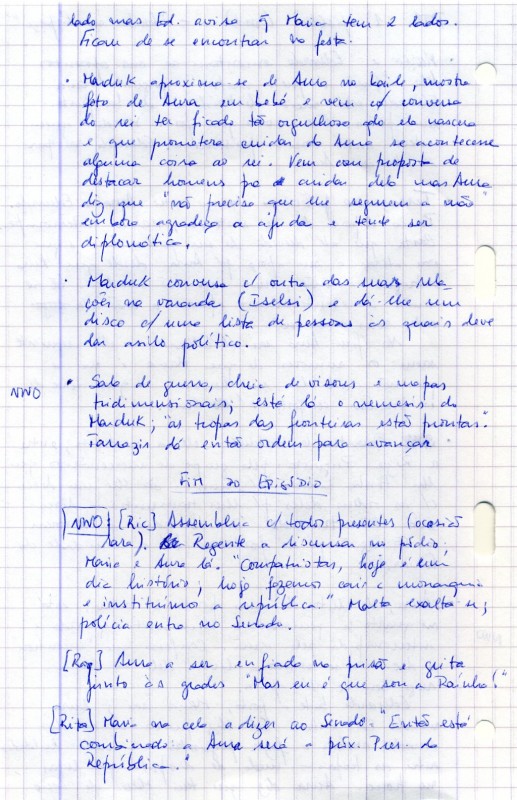 lado mas Ed. avisa q̃ Maia tem 2 lados.
Ficam de se encontrar na festa.
• Marduk aproxima-se de Aura no baile, mostra
foto de Aura em bebé e vem c/ conversa
do rei ter ficado tão orgulhoso qdo ela nascera
e que prometera cuidar da Aura se acontecesse
alguma coisa ao rei. Vem com proposta de
destacar homens pa cuidar dela mas Aura
diz que "não precisa que lhe segurem a mão"
embora agradeça a ajuda e tente ser
diplomática.
• Marduk conversa c/ outra das suas rela-
ções na varanda (Iselsi) e dá-lhe um
disco c/ uma lista de pessoas às quais deve
dar asilo político.
NWO • Sala de guerra, cheia de visores e mapas
tridimensionais; está lá o nemesis do
Marduk; "as tropas das fronteiras estão prontas".
Tarrazir dá então ordem para avançar
FIM DO EPISÓDIO
NWO [Ric] Assembleia c/ todos presentes (ocasião
rara). Regente a discursar no pódio;
Maia e Aura lá. "Compatriotas, hoje é um
dia histórico; hoje fazemos cair a monarquia
e instituímos a república." Malta exalta-se;
polícia entra no Senado.
Aura a ser enfiada na prisão e grita
junto às grades "Mas eu é que sou a Rainha!"
[Rita] Maia na cela a dizer ao Senado "Então está
combinado: a Aura será a próx. Pres. da
República."